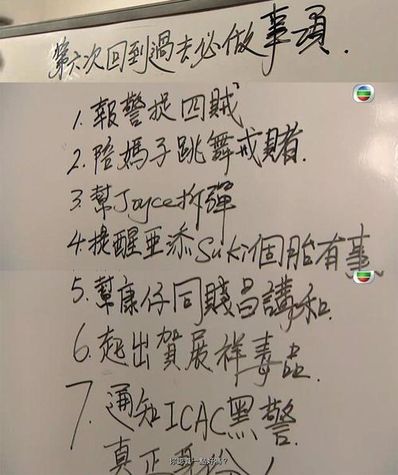 第六次回到過去必做事項.
1. 報警捉四賊
2. 陪媽子跳舞戒賭.
3. 幫Joyce拆彈
4. 提醒亞添Suki個胎有事
5. 幫康仔同賤昌講和.
6. 起出賀展祥毒品.
7. 通知ICAC黑警
真正